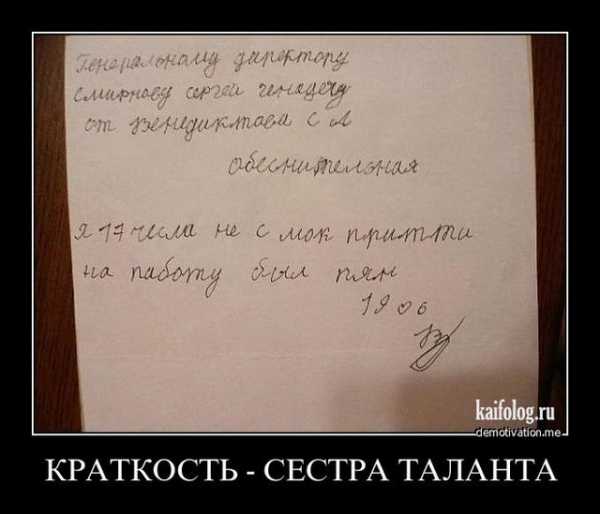 Генеральному директору
Смирнову сергей генадеву
от Венедиктова с л
обеснительная
я 17 числа не с мок притти
на паботу был пян
19 06
kaifolog.ru
demotivation.me
КРАТКОСТЬ - СЕСТРА ТАЛАНТА